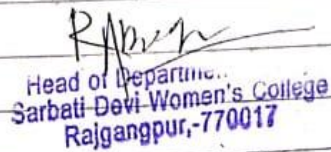 Head of Departme..
Sarbati Devi Women's College
Rajgangpur,-770017